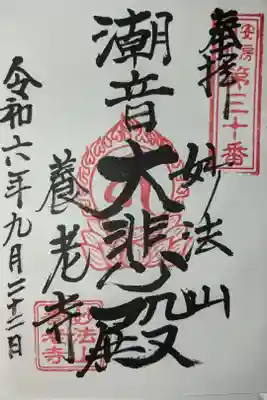 奉拝
安房
第三十番
妙法山
潮音
大悲殿
養老寺
令和六年九月二十二日
妙法山
養老寺